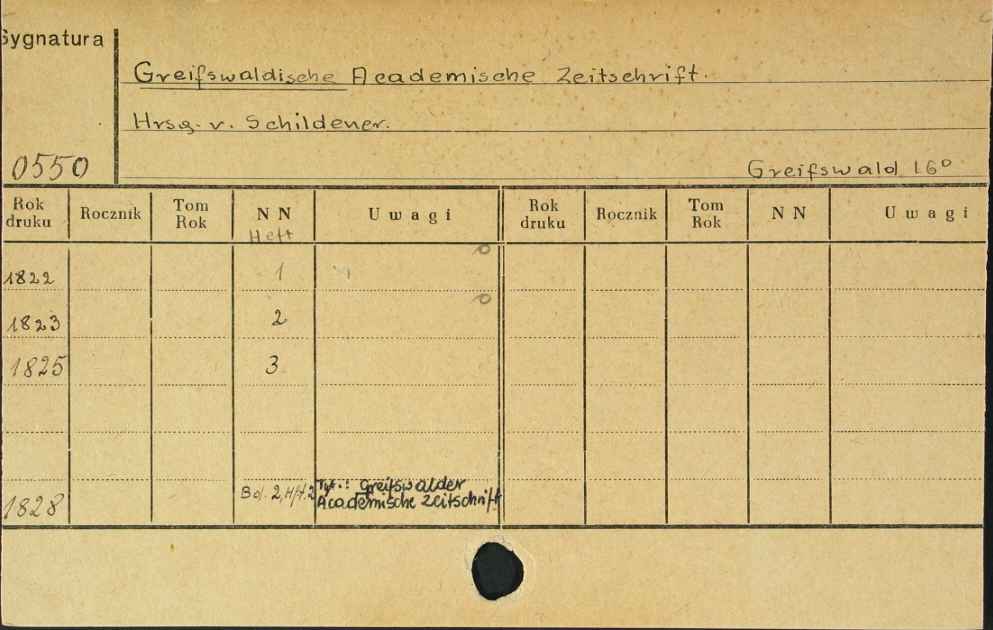 Sygnatura
Greifswaldische Academische Zeitschrift.
Hrsg. v. Schildener.
0550
Greifswald 16°
Rok druku Rocznik Tom Rok NN Uwagi Rok druku Rocznik Tom Rok NN Uwagi
Heft
1822 1
1823 2
1825 3
1828 Bd. 2, Hft. 2 Tyt.: Greifswalder
Academische Zeitschrift